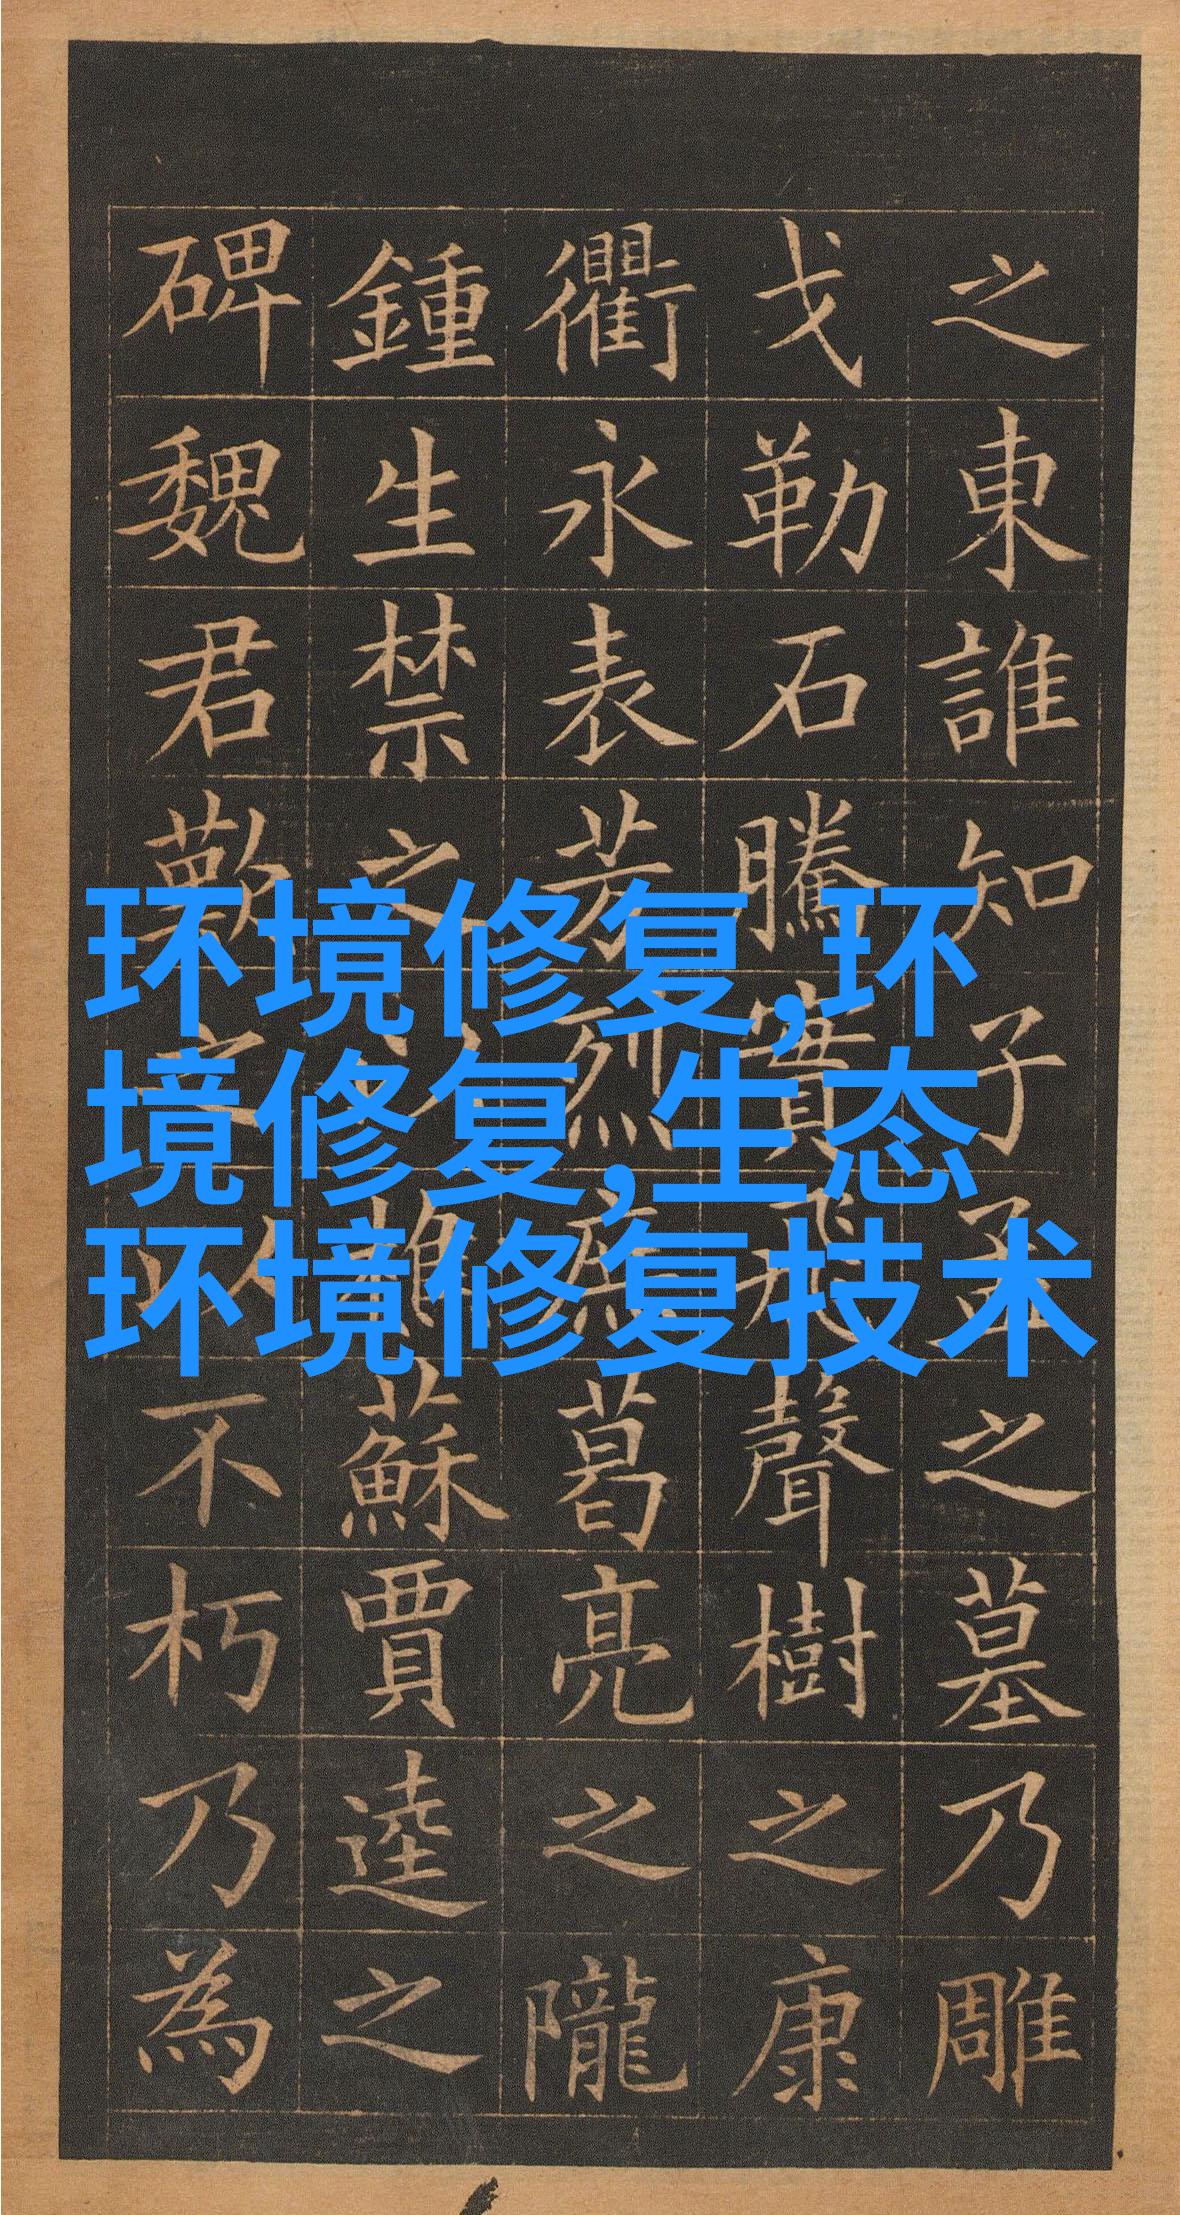 环境修复,环
境修复,生态
环境修复技术
之東誰知子孟之墓乃雕
戈勒石騰實飛聲樹之康
衢永表芳烈庶葛亮之隴
鍾生禁之以樵蘇賈逵之
碑魏君勤之以不朽乃為